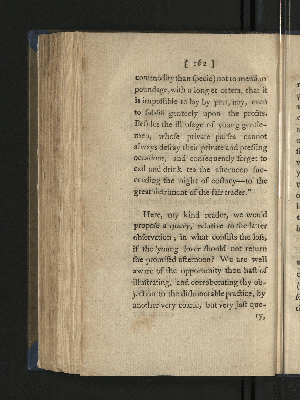 [ 162 ]
commodity than specie) not to mention
poundage, with a long et cetera, that it
is impossible to lay by pert, nay, even
to subsist genteely upon the profits.
Besides the ill usage of young gentle-
men, whose private purses cannot
always defray their private and pressing
occasions, and consequently forget to
call and drink tea the afternoon suc-
ceeding the night of ecstacy—to the
great detriment of the fair trader."
Here, my kind reader, we wou'd
propose a query, relative to the latter
observation, in what consists the loss,
if the young lover should not return
the promised afternoon? We are well
aware of the opportunity thou hast of
illustrating, and corroborating thy ob-
jection to the dishonorable practice, by
another very comic, but very just que-
ry,